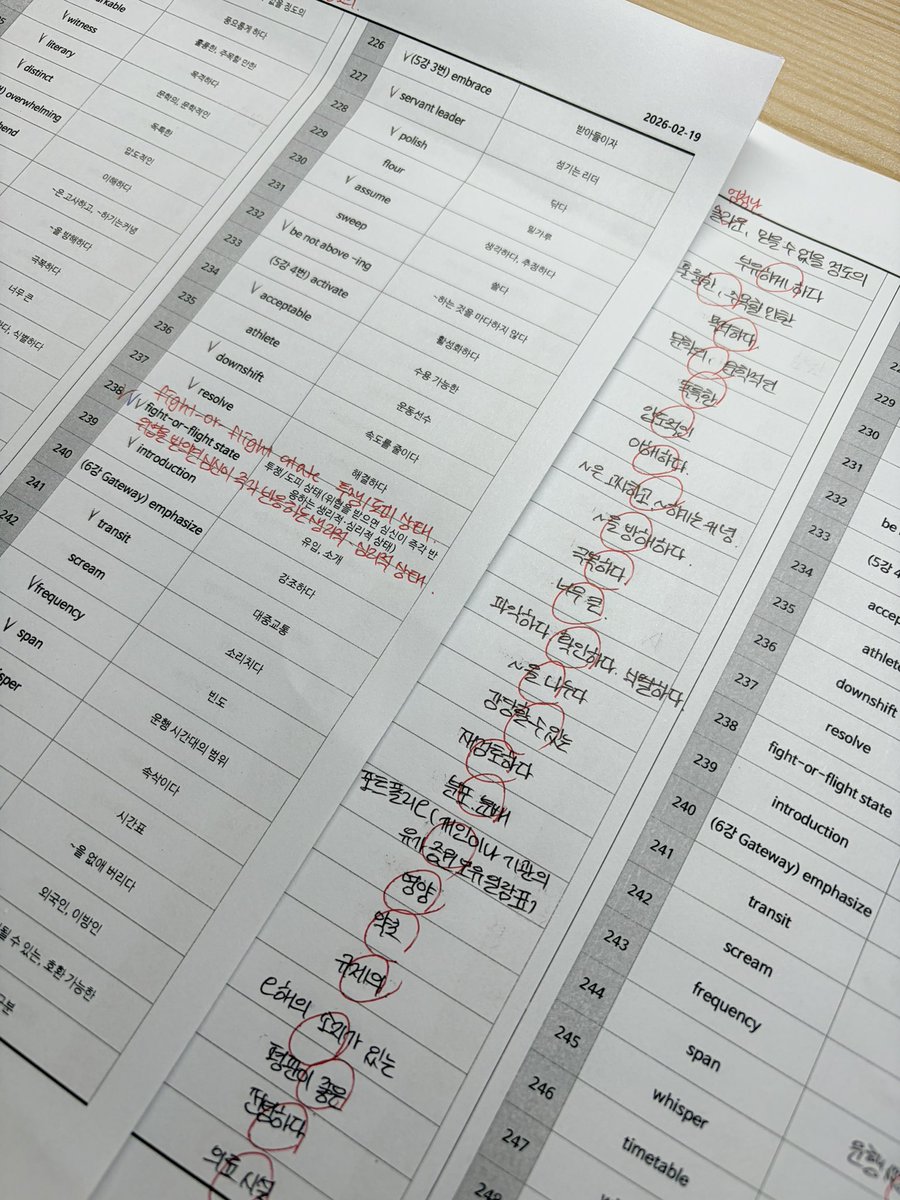 없을 정도의
풍요롭게 하다
witness
훌륭한, 주목할 만한
literary
목격하다
distinct
문학의, 문학적인
overwhelming
독특한
압도적인
이해하다
~은 고사하고, ~하기는커녕
~을 방해하다
극복하다
너무 큰
2026-02-19
226 (5강 3번) embrace 받아들이자
227 servant leader 섬기는 리더
228 polish 닦다
229 flour 밀가루
230 assume 생각하다, 추정하다
231 sweep 쓸다
232 be not above -ing ~하는 것을 마다하지 않다
233 (5강 4번) activate 활성화하다
234 acceptable 수용 가능한
235 athlete 운동선수
236 downshift 속도를 줄이다
237 resolve 해결하다
fight-or-flight state 투쟁/도피 상태
238 fight-or-flight state 투쟁/도피 상태(위협을 받으면 심신이 즉각 반응하는 생리적·심리적 상태)
위협을 받으면 심신이 즉각 반응하는 생리적·심리적 상태
239 introduction 유입, 소개
240 (6강 Gateway) emphasize 강조하다
241 transit 대중교통
242 scream 소리치다
frequency 빈도
span 운행 시간대의 범위
속삭이다
시간표
~을 없애 버리다
외국인, 이방인
수 있는, 호환 가능한
놀라운, 믿을 수 없을 정도의
부유하게 하다
훌륭한, 주목할 만한
목격하다
문학의, 문학적인
독특한
압도적인
이해하다.
~은 고사하고, ~하기는커녕
~을 방해하다.
극복하다
너무 큰
파악하다 확인하다. 식별하다.
~을 나누다
감당할 수 있는
재검토하다
분포. 분배
포트폴리오 (개인이나 기관의
유가 증권 보유 열람표)
영양
약초
규제의
조회가 있는
평판이 좋은
전념하다
의료 시설
229
230
231
232
233
234
235 athlete
236 downshift
237 resolve
238 fight-or-flight state
239 introduction
240 (6강 Gateway) emphasize
241 transit
242 scream
243 frequency
244 span
245 whisper
246 timetable
247
248